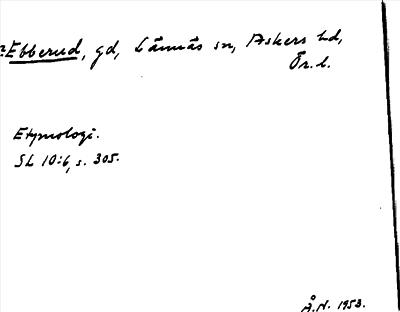 Ebberud, gd, Lännäs sn, Askers hd,
Ör. l.
Etymologi.
SL 10:6, s. 305.
Å.N. 1953.